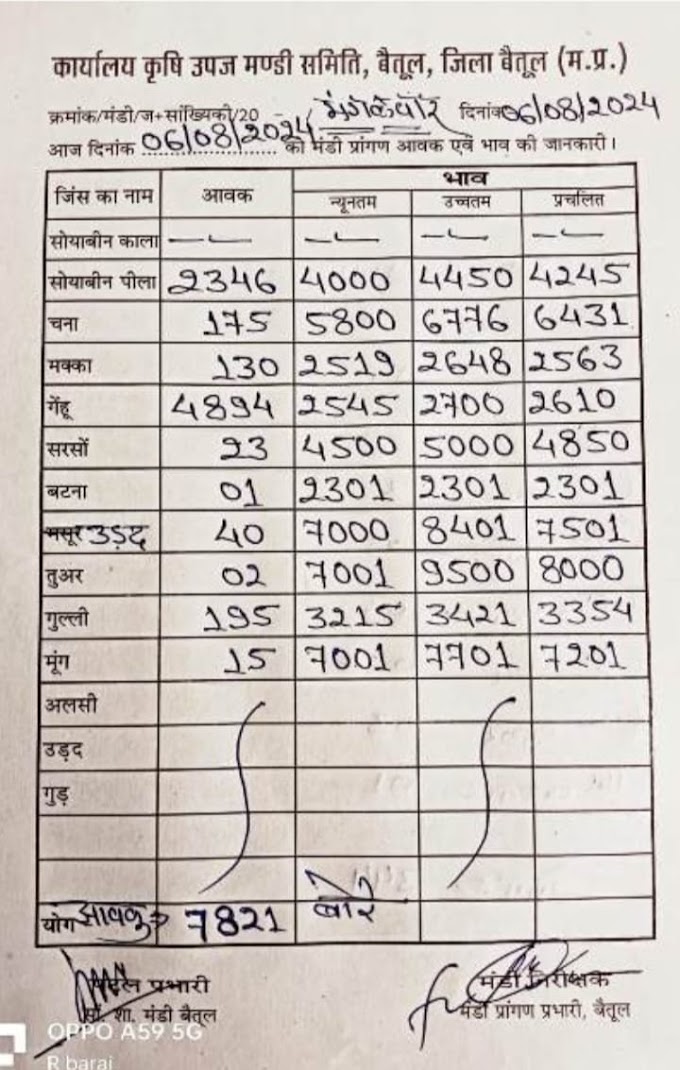 कार्यालय कृषि उपज मण्डी समिति, बैतूल, जिला बैतूल (म.प्र.)
क्रमांक/मंडी/ज+सांख्यिकी/20 मंगलवार दिनांक 06/08/2024
आज दिनांक 06/08/2024 को मंडी प्रांगण आवक एवं भाव की जानकारी।
जिंस का नाम आवक भाव
न्यूनतम उच्चतम प्रचलित
सोयाबीन काला — — — —
सोयाबीन पीला 2346 4000 4450 4245
चना 175 5800 6776 6431
मक्का 130 2519 2648 2563
गेंहू 4894 2545 2700 2610
सरसों 23 4500 5000 4850
बटना 01 2301 2301 2301
मसूर उड़द 40 7000 8401 7501
तुअर 02 7001 9500 8000
गुल्ली 195 3215 3421 3354
मूंग 15 7001 7701 7201
अलसी
उड़द
गुड़
योग आवक 7821 बोरे
प्रभारी मंडी निरीक्षक
शा. मंडी बैतूल मंडी प्रांगण प्रभारी, बैतूल
OPPO A59 5G
R barai